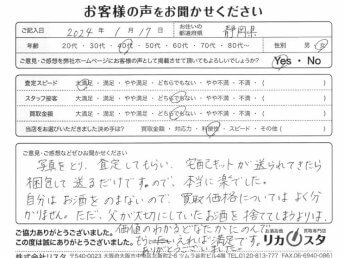 お客様の声をお聞かせください
ご記入日 2024年 1月 17日 お住いの都道府県 静岡県
年齢 20代・30代・40代・50代・60代・70代・80代〜 性別 男・女
ご意見・ご感想を弊社ホームページにお客様の声として掲載させて頂いてもよろしいでしょうか? Yes・No
査定スピード 大満足・満足・どちらでもない・やや不満・不満・( )
スタッフ接客 大満足・満足・どちらでもない・やや不満・不満・( )
買取金額 大満足・満足・どちらでもない・やや不満・不満・( )
当店をお選びいただきました決め手は? 買取金額・対応力・利便性・スピード・その他( )
ご意見・ご感想などぜひお聞かせください
写真をとり、査定してもらい、宅配キットが送られてきたら
梱包して送るだけですので、本当に楽でした。
自分はお酒をのまないので、買取価格についてはよく分
かりません。ただ、父が大切にしていたお酒を捨ててしまうよりは、
価値のわかるどなたかにのんで
もらえれば満足です。
ありがとうございました。
ご協力ありがとうございました
この度は誠にありがとうございました。
お酒高価買取専門店
リカスタ
株式会社リスタ 〒540-0023
TEL.0120-813-777 FAX.06-6940-0861